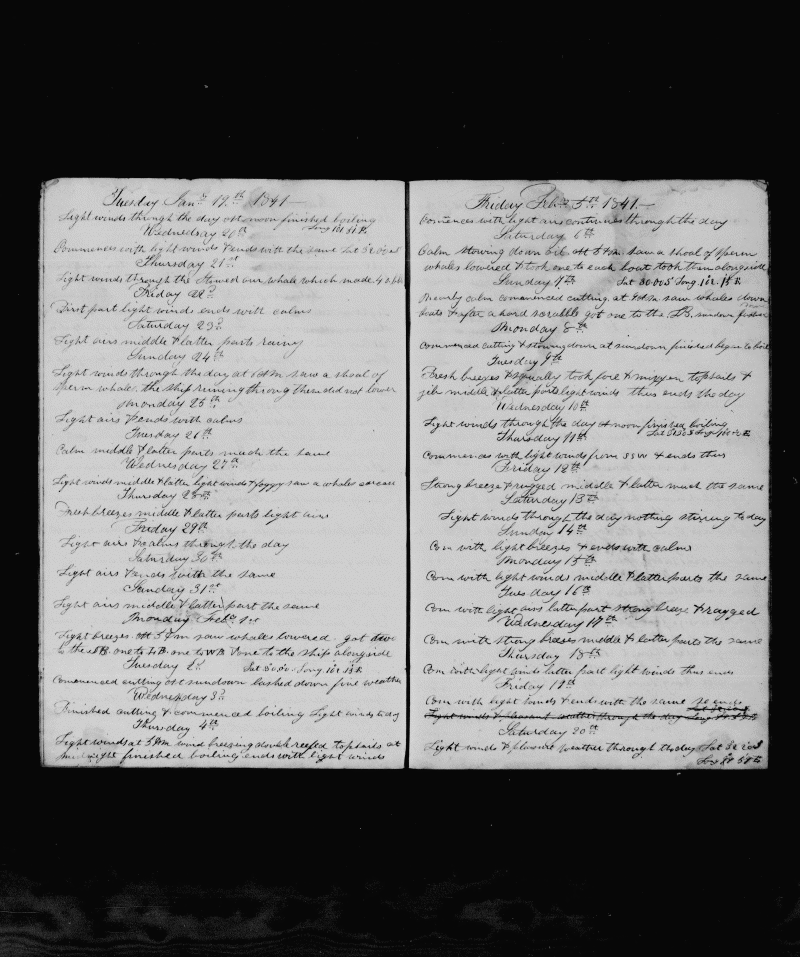 Tuesday Jan 19th 1841
Light winds through the day at noon finished boiling
Wednesday 20th
Commences with light winds & ends with the same Lat
Thursday 21st
Light winds through the Stowed our whale which made 40
Friday 22d
First part light winds ends with calms
Saturday 23d
Light airs middle & latter parts rainy
Sunday 24th
Light winds through the day at PM saw a shoal of
sperm whale. the ship runing throug them did not lower
Monday 25th
Light airs & ends with calms
Tuesday 26th
Calm middle & latter parts much the same
Wednesday 27th
Light winds middle & latter light winds & foggy saw a whales carcase
Thursday 28th
Fresh breezes middle & latter parts light airs
Friday 29th
Light airs & calms through the day
Saturday 30th
Light airs & ends with the same
Sunday 31st
Light airs middle & latter part the same
Monday Feb 1st
Light breezes. At PM saw whales lowered got
to the SB. one to LB. one to WB & one to the ship alongside
Tuesday 2d Lat Long
Comenced cutting at sundown lashed down fine weather
Wednesday 3d
Finished cutting & commenced boiling Light winds to day
Thursday 4th
Light winds at PM wind breezing double reefed topsails at
finished boiling ends with light winds
Friday Feb 5th 1841
Comences with light airs continues through the day
Saturday 6th
Calm stowing down oil at PM. saw a shoal of sperm
whales lowered & took one to each boat took them alongside
Sunday 7th Lat Long
Nearly calm commenced cutting. at PM saw whales down
boats & after a hard scrabble got one to the sundown
Monday 8th
Commenced cutting & stowing down at sundown finished began to boil
Tuesday 9th
Fresh breezes & squally took fore & mizzen topsails &
jib middle & latter parts light winds thus ends the day
Wednesday 10th
Light winds through the day at noon finished boiling
Thursday 11th Lat Long
Commences with light winds from SSW & ends thus
Friday 12th
Strong breeze & rugged middle & latter much the same
Saturday 13th
Light winds through the day nothing stirring to day
Sunday 14th
Com with light breezes & ends with calms
Monday 15th
Com with light winds middle & latter parts the same
Tuesday 16th
Com with light airs latter part strong breeze & ragged
Wednesday 17th
Com with strong breezes middle & latter parts the same
Thursday 18th
Com with light winds latter part light winds thus ends
Friday 19th
Com with light winds & ends with the same so ends
Light winds & pleasant weather through the day
Saturday 20th
Light winds & pleasure weather through the day Lat
Long